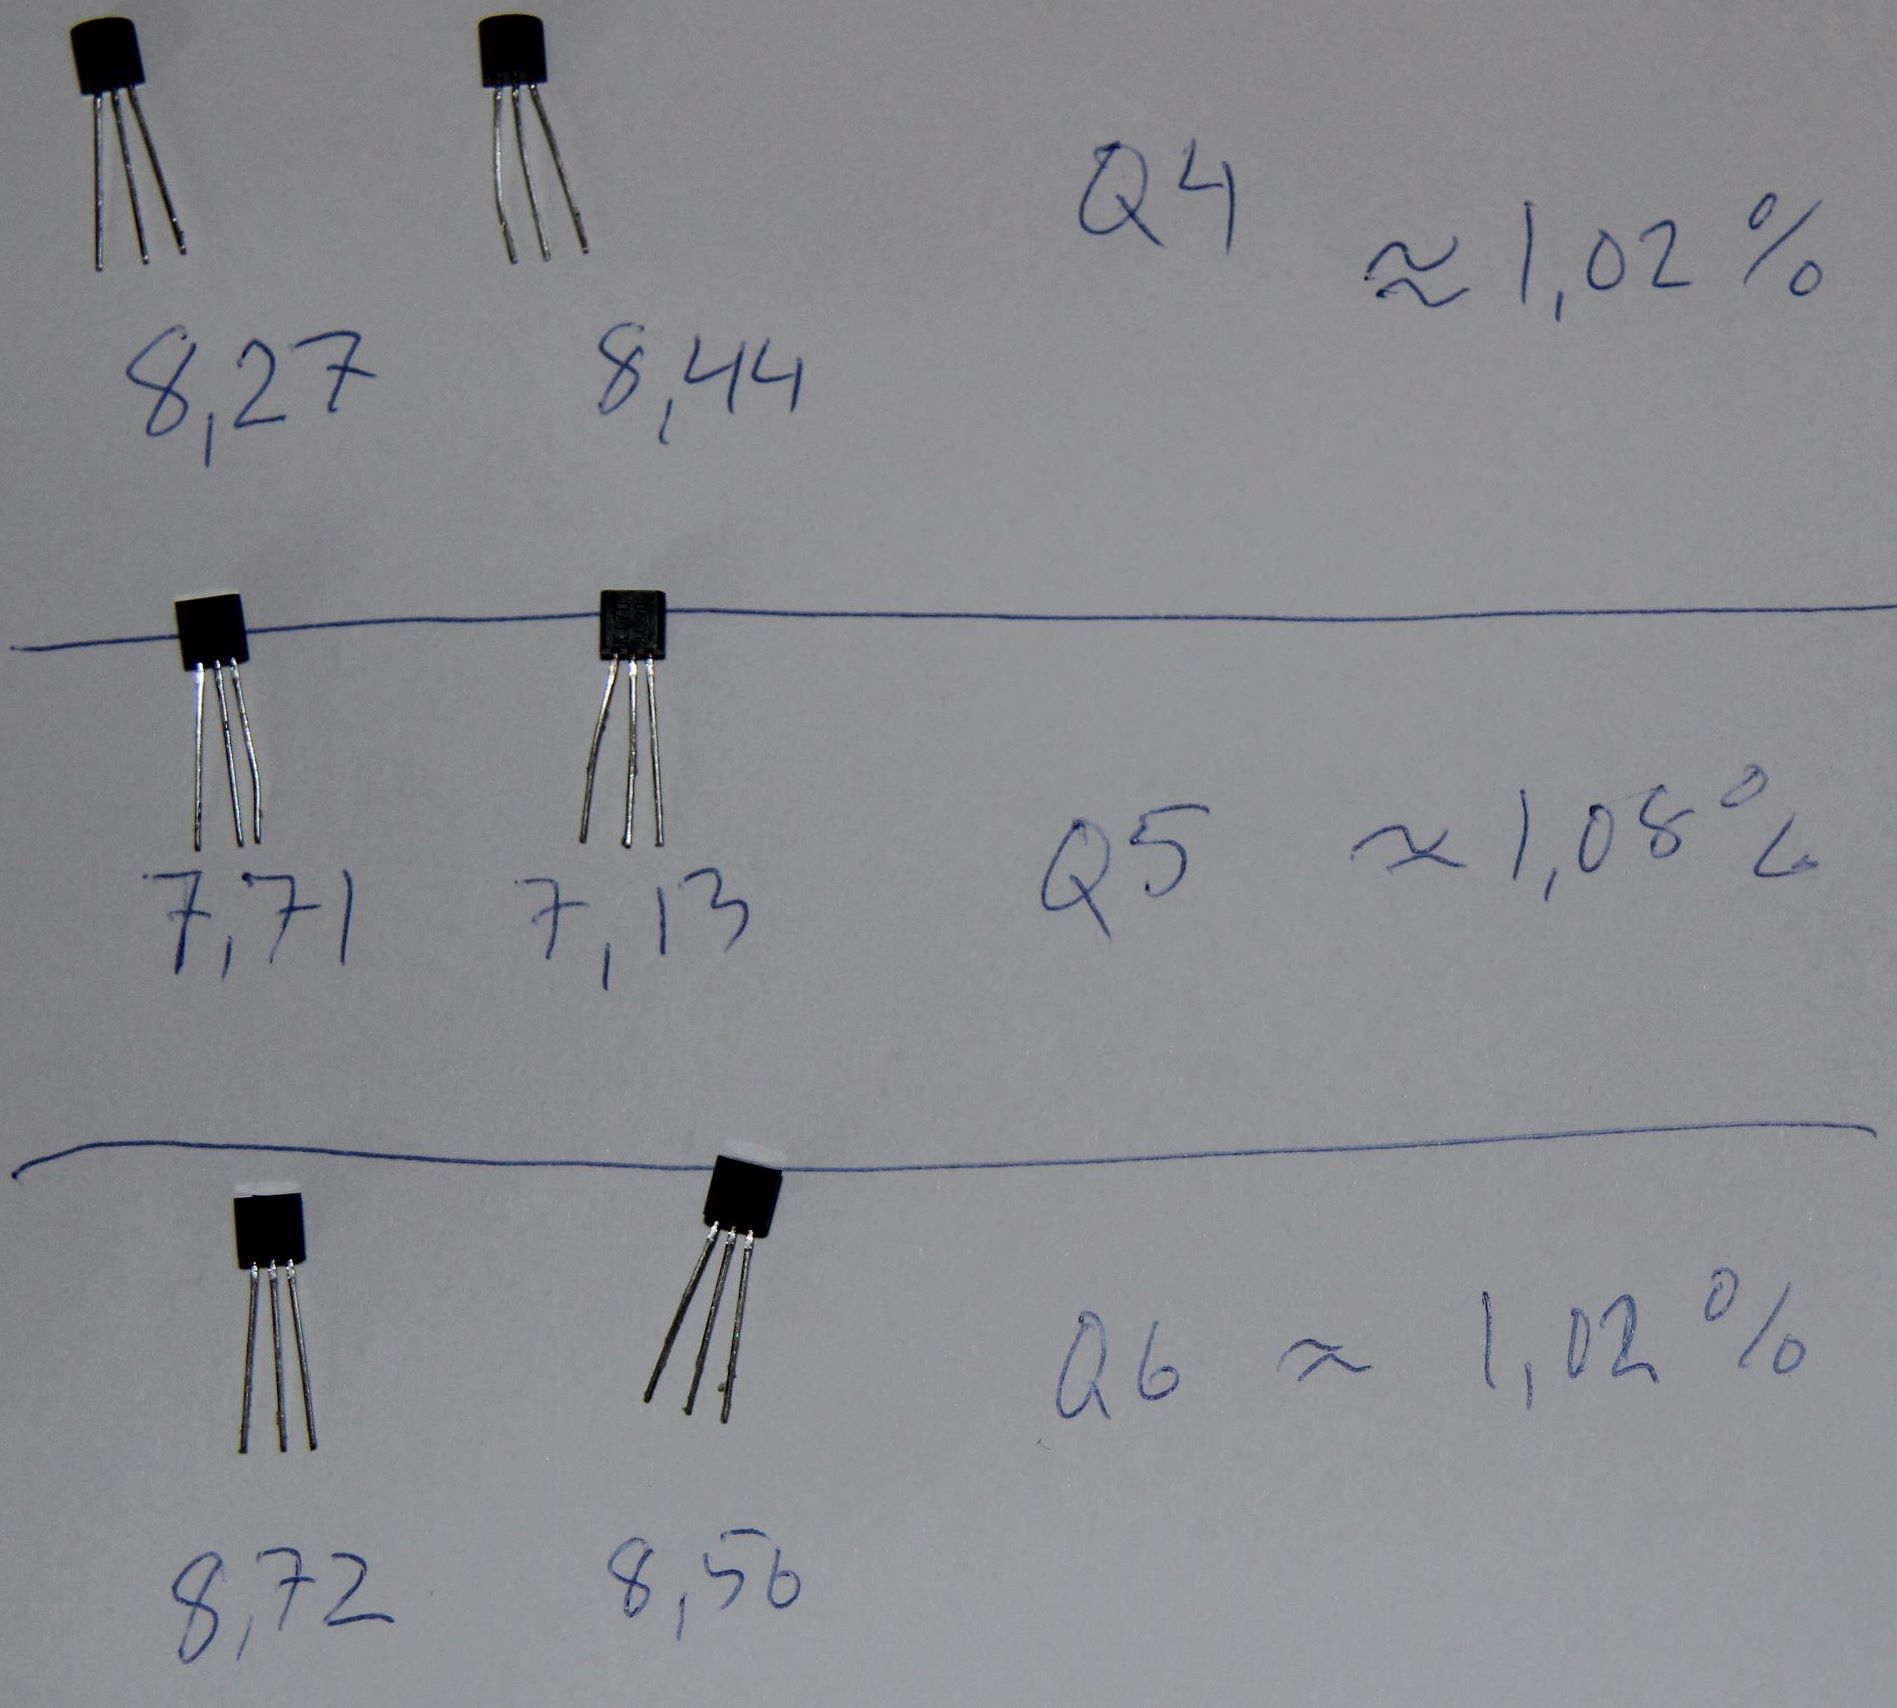 Q4 ≈ 1,02 %
8,27 8,44
Q5 ≈ 1,08 %
7,71 7,13
Q6 ≈ 1,02 %
8,72 8,56